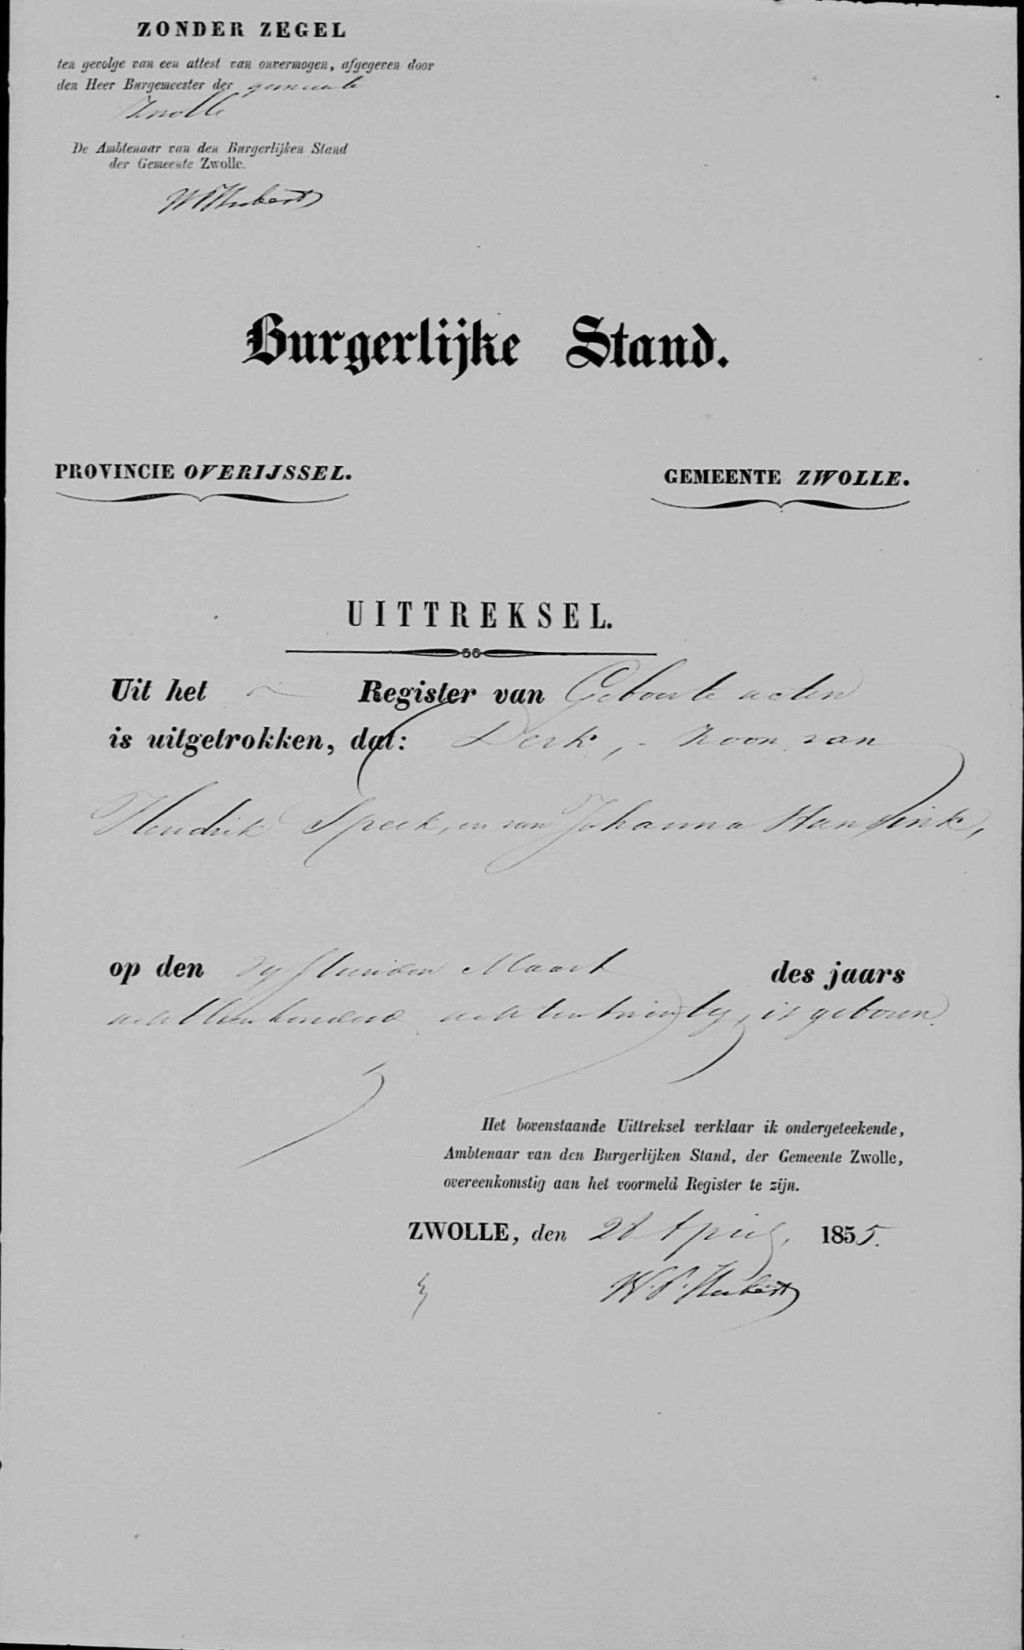 ZONDER ZEGEL
ten gevolge van een attest van onvermogen, afgegeven door
den Heer Burgemeester der gemeente
Zwolle
De Ambtenaar van den Burgerlijken Stand
der Gemeente Zwolle.
Burgerlijke Stand.
PROVINCIE OVERIJSSEL.
GEMEENTE ZWOLLE.
UITTREKSEL.
Uit het Register van Geboorte acten
is uitgetrokken, dat: Derk, - Zoon van
Hendrik Speek, en van Johanna Hansink,
op den vyftienden Maart des jaars
achttienhonderd achtentwintig, is geboren.
Het bovenstaande Uittreksel verklaar ik ondergeteekende,
Ambtenaar van den Burgerlijken Stand, der Gemeente Zwolle,
overeenkomstig aan het voormeld Register te zijn.
ZWOLLE, den 28 April, 1855.